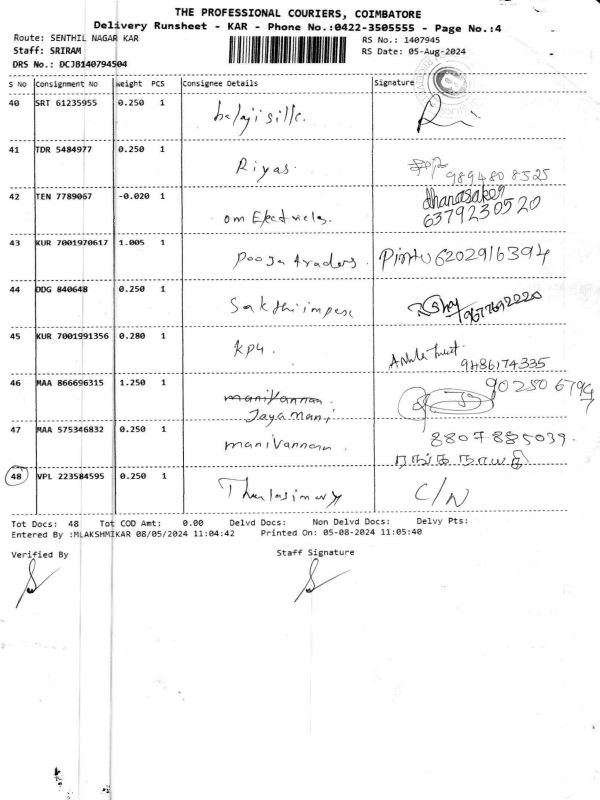 THE PROFESSIONAL COURIERS, COIMBATORE
Delivery Runsheet - KAR - Phone No.:0422-3505555 - Page No.:4
Route: SENTHIL NAGAR KAR RS No.: 1407945
Staff: SRIRAM RS Date: 05-Aug-2024
DRS No.: DCJB140794504
S No Consignment No weight PCS Consignee Details Signature
40 SRT 61235955 0.250 1 balaji silk.
41 TDR 5484977 0.250 1 Riyas. 9894808525
42 TEN 7789067 -0.020 1 om Electricals. dhanasaker
6379230520
43 KUR 7001970617 1.005 1 Pooja traders. Pintu 6202916394
44 DDG 840648 0.250 1 Sakthi impex 9677692220
45 KUR 7001991356 0.280 1 KPY.
9486174335
46 MAA 866696315 1.250 1 manivannan 9025067947
Jayamani
47 MAA 575346832 0.250 1 manivannan 8807885039.
ரங்கநாயகி
48 VPL 223584595 0.250 1 Thulasimary C/N
Tot Docs: 48 Tot COD Amt: 0.00 Delvd Docs: Non Delvd Docs: Delvy Pts:
Entered By :MLAKSHMIKAR 08/05/2024 11:04:42 Printed On: 05-08-2024 11:05:40
Verified By Staff Signature